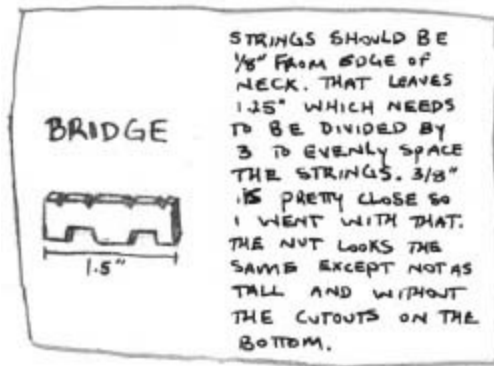 BRIDGE
1.5"
STRINGS SHOULD BE
1/8" FROM EDGE OF
NECK. THAT LEAVES
1.25" WHICH NEEDS
TO BE DIVIDED BY
3 TO EVENLY SPACE
THE STRINGS. 3/8"
IS PRETTY CLOSE SO
I WENT WITH THAT.
THE NUT LOOKS THE
SAME EXCEPT NOT AS
TALL AND WITHOUT
THE CUTOUTS ON THE
BOTTOM.